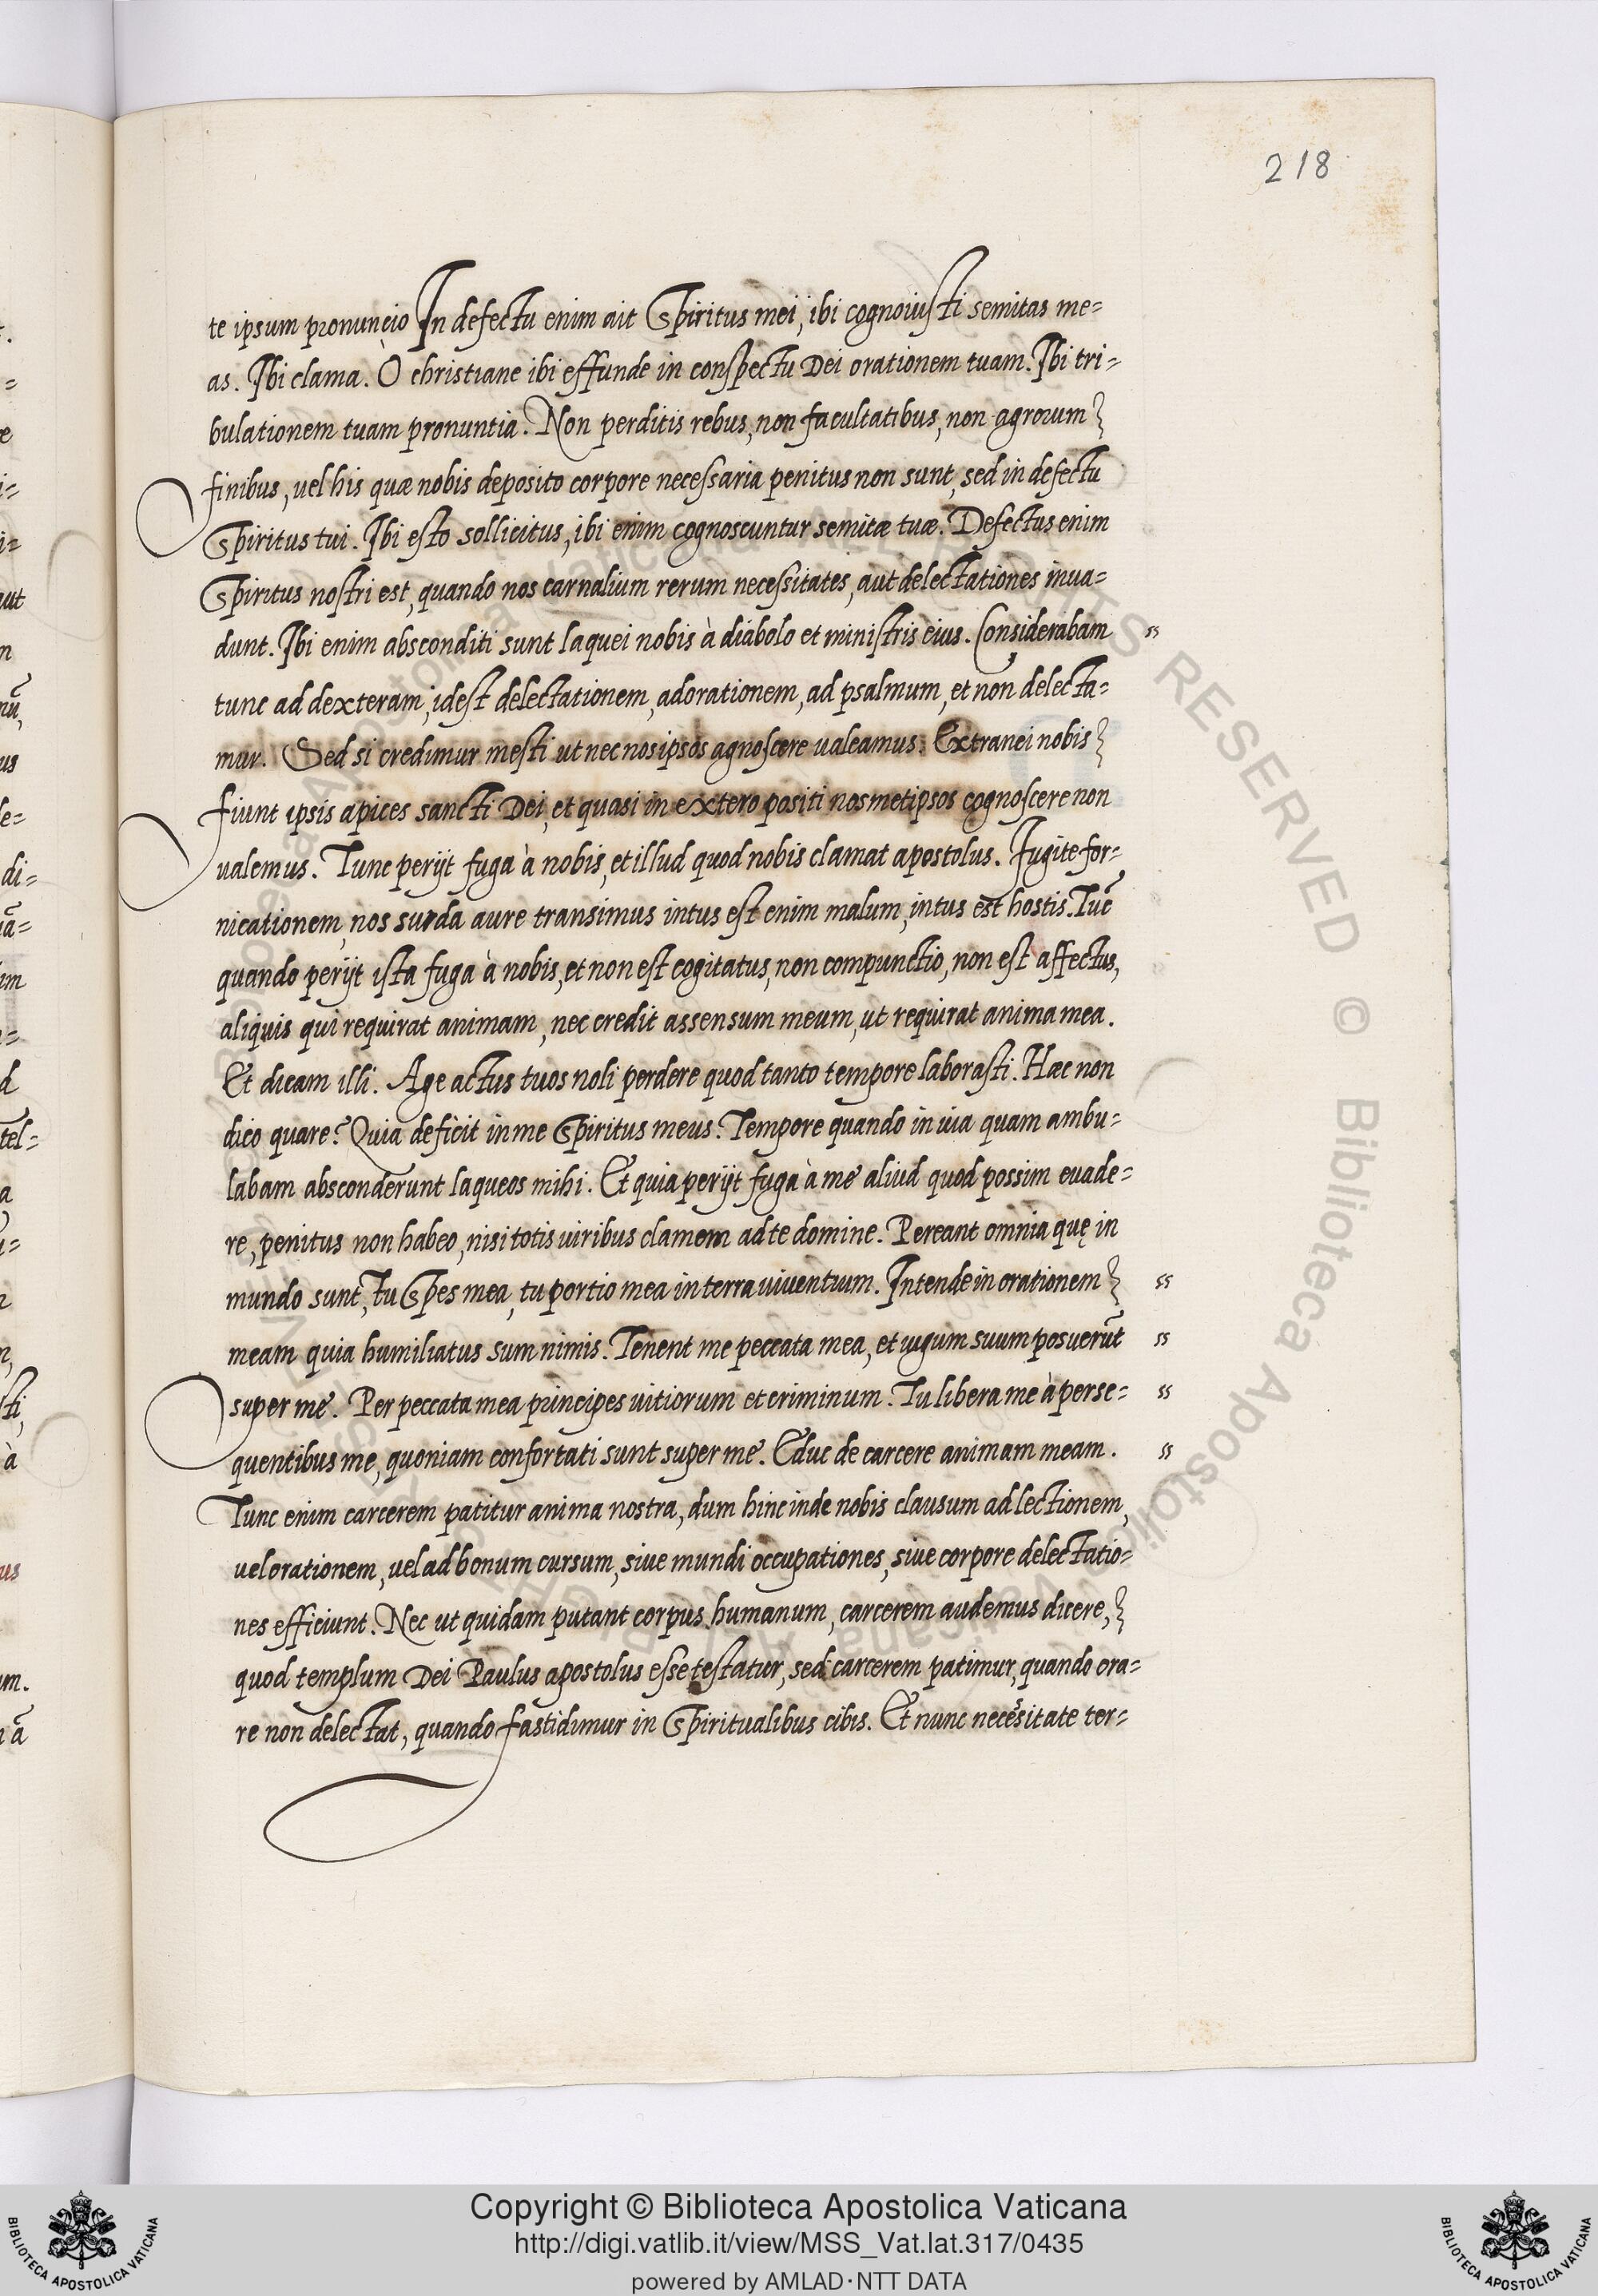 218
te ipsum pronuncio In defectu enim ait Spiritus mei, ibi cognoiusti semitas me=
as. Ibi clama. O christiane ibi effunde in conspectu Dei orationem tuam. Ibi tri=
bulationem tuam pronuntia. Non perditis rebus, non facultatibus, non agrorum
finibus, uel his quæ nobis deposito corpore necessaria penitus non sunt, sed in defectu
Spiritus tui. Ibi esto sollicitus, ibi enim cognoscuntur semitæ tuæ. Defectus enim
Spiritus nostri est, quando nos carnalium rerum necessitates, aut delectationes inua=
dunt. Ibi enim absconditi sunt laquei nobis à diabolo et ministris eius. Considerabam ss
tunc ad dexteram, idest delectationem, adorationem, ad psalmum, et non delecta=
mur. Sed si credimur mesti ut nec nos ipsos agnoscere ualeamus. Extranei nobis
fiunt ipsis apices sancti Dei, et quasi in extero positi nosmetipsos cognoscere non
ualemus. Tunc perijt fuga à nobis, et illud quod nobis clamat apostolus. Fugite for=
nicationem, nos surda aure transimus intus est enim malum, intus est hostis. Tuc̃
quando perijt ista fuga à nobis, et non est cogitatus, non compunctio, non est affectus,
aliquis qui requirat animam, nec credit assensum meum, ut requirat anima mea.
Et dicam illi. Age actus tuos noli perdere quod tanto tempore laborasti. Hæc non
dico quare? Quia deficit in me Spiritus meus. Tempore quando in uia quam ambu=
labam absconderunt laqueos mihi. Et quia perijt fuga à me aliud quod possim euade=
re, penitus non habeo, nisi totis uiribus clamem ad te domine. Pereant omnia quę in
mundo sunt, tu Spes mea, tu portio mea in terra uiuentium. Intende in orationem ss
meam quia humiliatus sum nimis. Tenent me peccata mea, et iugum suum posuerũt ss
super me. Per peccata mea principes uitiorum et criminum. Tu libera me à perse= ss
quentibus me, quoniam confortati sunt super me. Educ de carcere animam meam. ss
Tunc enim carcerem patitur anima nostra, dum hinc inde nobis clausum ad lectionem,
uel orationem, uel ad bonum cursum, siue mundi occupationes, siue corpore delectatio=
nes efficiunt. Nec ut quidam putant corpus humanum, carcerem audemus dicere,
quod templum Dei Paulus apostolus esse testatur, sed carcerem patimur, quando ora=
re non delectat, quando fastidimur in Spiritualibus cibis. Et nunc necessitate ter=
Copyright © Biblioteca Apostolica Vaticana
http://digi.vatlib.it/view/MSS_Vat.lat.317/0435
powered by AMLAD·NTT DATA
BIBLIOTECA APOSTOLICA VATICANA
BIBLIOTECA APOSTOLICA VATICANA